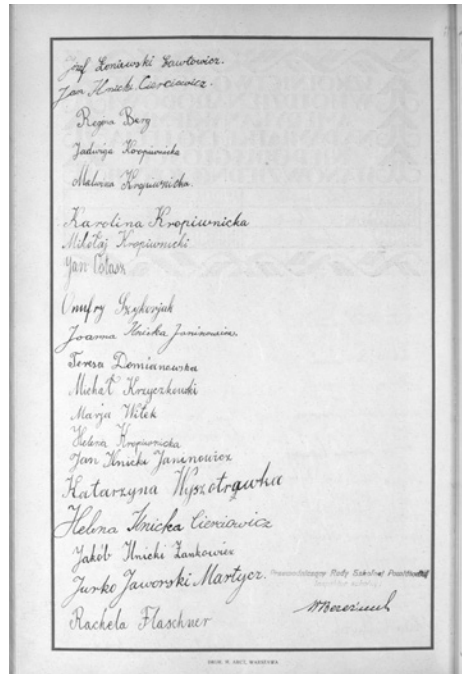 Józef Łoniewski Pawłowicz.
Jan Ilnicki Cierciewicz.
Regina Berg
Jadwiga Kropiwnicka
Malwina Kropiwnicka
Karolina Kropiwnicka
Mikołaj Kropiwnicki
Jan
Onufry Szykerjak
Joanna Ilnicka Janinowicz.
Teresa Domianowska
Michał Krzyczkowski
Marja Witek
Helena Kropiwnicka
Jan Ilnicki Janinowicz
Katarzyna Wyszotrawka
Helena Ilnicka Cieniowicz
Jakób Ilnicki Zankowicz
Jurko Jaworski Martycz.
Przewodniczący Rady Szkolnej Powiatowej
Rachela Flaschner
DRUK. W.
WARSZAWA